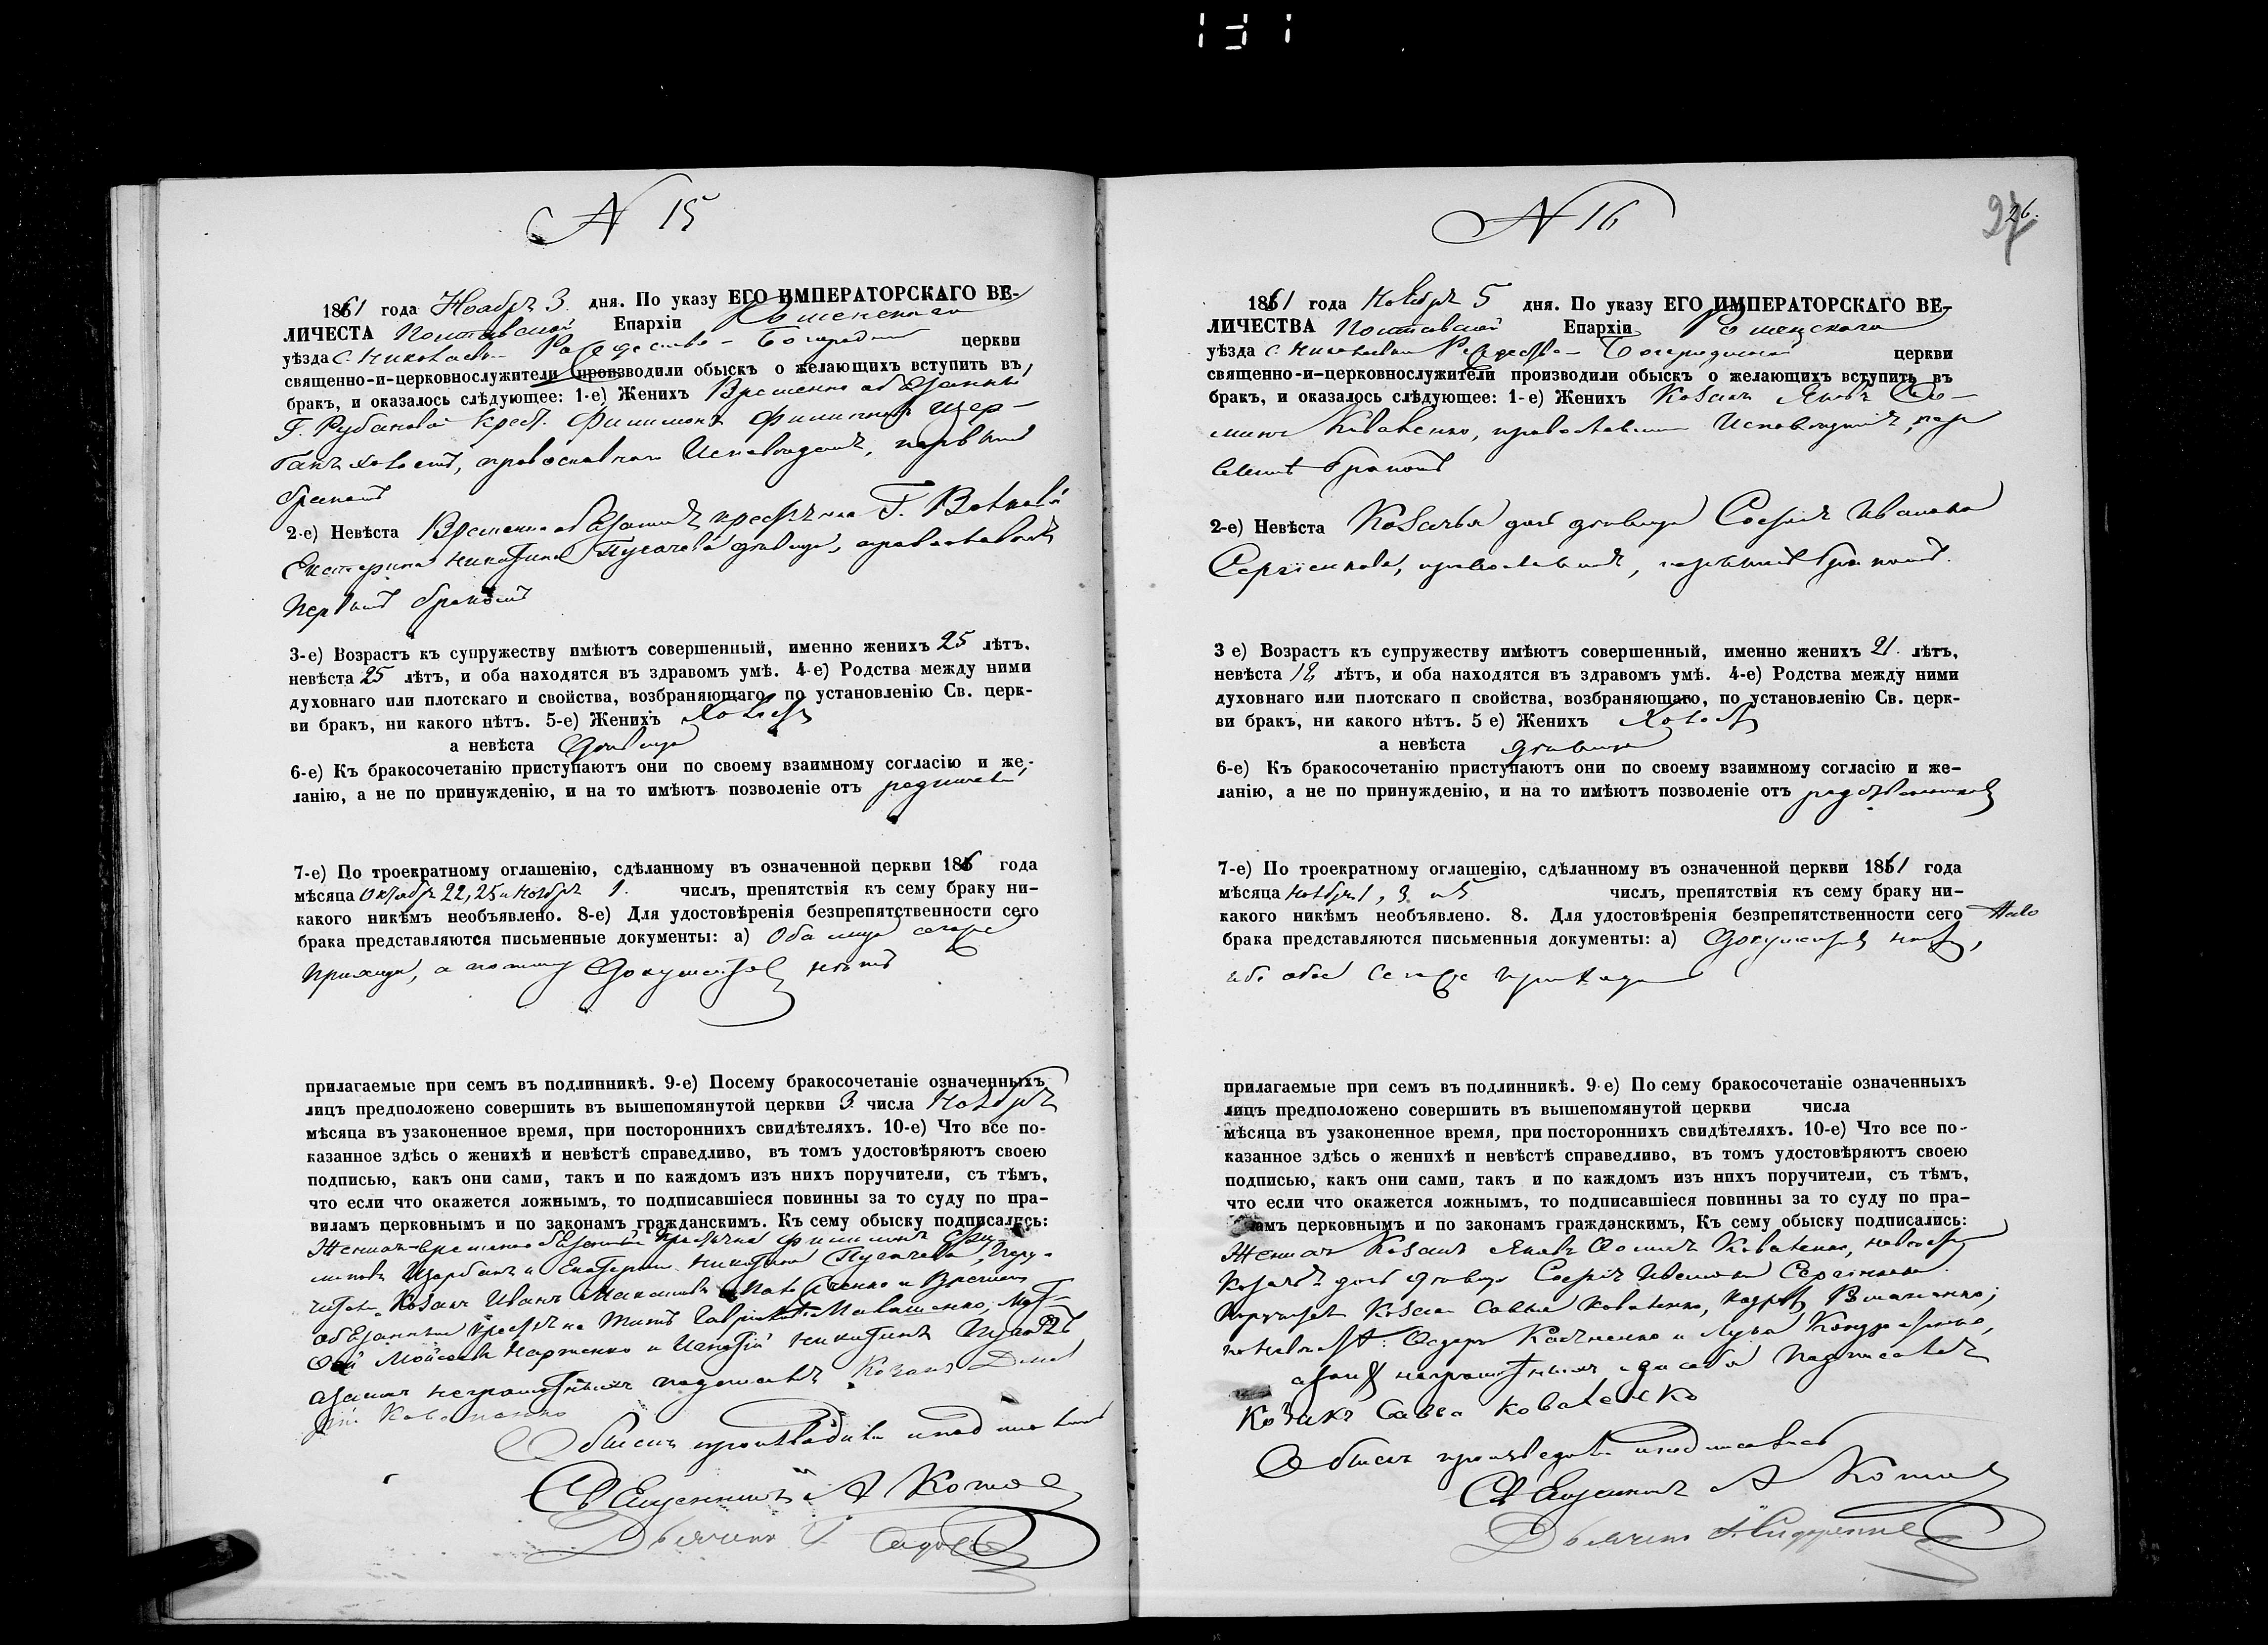 131
N 15
1861 года Ноября 3 дня. По указу ЕГО ИМПЕРАТОРСКАГО ВЕ-
ЛИЧЕСТА Полтавской Епархіи Роменскаго
уѣзда с. Николаевки Рождество-Богородич церкви
священно-и-церковнослужители производили обыскъ о желающихъ вступить въ
бракъ, и оказалось слѣдующее: 1-е) Женихъ Временно обязанный
Г. Рубановой крест. Филимонъ Филиповъ Щер-
бакъ холостъ, православнаго исповѣданія, первымъ
бракомъ
2-е) Невѣста Временно обязанная крестьянка Г.
Екатерина Никитина Пугачева дѣвица, православная
первымъ бракомъ
3-е) Возрастъ къ супружеству имѣютъ совершенный, именно женихъ 25 лѣтъ.
невѣста 25 лѣтъ, и оба находятся въ здравомъ умѣ. 4-е) Родства между ними
духовнаго или плотскаго и свойства, возбраняющаго, по установленію Св. церк-
ви бракъ, ни какого нѣтъ. 5-е) Женихъ Холостъ
а невѣста дѣвица
6-е) Къ бракосочетанію приступаютъ они по своему взаимному согласію и же-
ланію, а не по принужденію, и на то имѣютъ позволеніе отъ
7-е) По троекратному оглашенію, сдѣланному въ означенной церкви 186 года
мѣсяца Октября 22, 25 и Ноября 1. числъ, препятствія къ сему браку ни-
какого никѣмъ необъявлено. 8-е) Для удостовѣренія безпрепятственности сего
брака представляются письменные документы: а) Оба лица сего же
прихода, а потому документовъ нѣтъ
прилагаемые при семъ въ подлинникѣ. 9-е) Посему бракосочетаніе означенныхъ
лицъ предположено совершить въ вышепомянутой церкви 3 числа Ноября
мѣсяца въ узаконенное время, при постороннихъ свидѣтеляхъ. 10-е) Что все по-
казанное здѣсь о женихѣ и невѣстѣ справедливо, въ томъ удостовѣряютъ своею
подписью, какъ они сами, такъ и по каждомъ изъ нихъ поручители, съ тѣмъ,
что если что окажется ложнымъ, то подписавшіеся повинны за то суду по пра-
виламъ церковнымъ и по законамъ гражданскимъ. Къ сему обыску подписались:
Женихъ временно обязанный крестьянинъ Филимонъ Фи-
липовъ Щербакъ и Екатерина Никитина Пугачева, Пору-
чители Козакъ Иванъ и Времен.
обязанный крестьянинъ Титъ
Мойсеевъ и Никитинъ
а за нихъ неграмотныхъ подписался Козакъ
Коваленко
Обыскъ производили и подписались
Священникъ А
Дьячекъ
N 16
26.
27
1861 года Ноября 5 дня. По указу ЕГО ИМПЕРАТОРСКАГО ВЕ-
ЛИЧЕСТВА Полтавской Епархіи Роменскаго
уѣзда с. Николаевки Рождество-Богородичной церкви
священно-и-церковнослужители производили обыскъ о желающихъ вступить въ
бракъ, и оказалось слѣдующее: 1-е) Женихъ Козакъ Яковъ Фо-
минъ Коваленко, православнаго исповѣданія, пер
вымъ бракомъ
2-е) Невѣста Козачья дочь дѣвица Софія Иванова
Сергіенкова, православная, первымъ бракомъ.
3 е) Возрастъ къ супружеству имѣютъ совершенный, именно женихъ 21. лѣтъ,
невѣста 18 лѣтъ, и оба находятся въ здравомъ умѣ. 4-е) Родства между ними
духовнаго или плотскаго п свойства, возбраняющаго, по установленію Св. церк-
ви бракъ, ни какого нѣтъ. 5 е) Женихъ Холостъ
а невѣста дѣвица
6-е) Къ бракосочетанію приступаютъ они по своему взаимному согласію и же-
ланію, а не по принужденію, и на то имѣютъ позволеніе отъ родственниковъ
7-е) По троекратному оглашенію, сдѣланному въ означенной церкви 1861 года
мѣсяца Ноября 1, 3 и 5 числъ, препятствія къ сему браку ни-
какого никѣмъ необъявлено. 8. Для удостовѣренія безпрепятственности сего
брака представляются письменныя документы: а) Документовъ нѣтъ,
ибо оба сего же прихода
прилагаемые при семъ въ подлинникѣ. 9-е) По сему бракосочетаніе означенныхъ
лицъ предположено совершить въ вышепомянутой церкви числа
мѣсяца въ узаконенное время, при постороннихъ свидѣтеляхъ. 10-е) Что все по-
казанное здѣсь о женихѣ и невѣстѣ справедливо, въ томъ удостовѣряютъ своею
подписью, какъ они сами, такъ и по каждомъ изъ нихъ поручители, съ тѣмъ,
что если что окажется ложнымъ, то подписавшіеся повинны за то суду по пра-
ламъ церковнымъ и по законамъ гражданскимъ, Къ сему обыску подписались:
Женихъ Козакъ Яковъ Фоминъ Коваленко, невѣста
Козачья дочь дѣвица Софія Иванова Сергіенкова.
Поручители Козаки Савва Коваленко,
по невѣстѣ: Федоръ и Лука
а за нихъ неграмотныхъ и за себя подписался
Козакъ Савва Коваленко
Обыскъ производили и подписались
Священникъ А
Дьячекъ